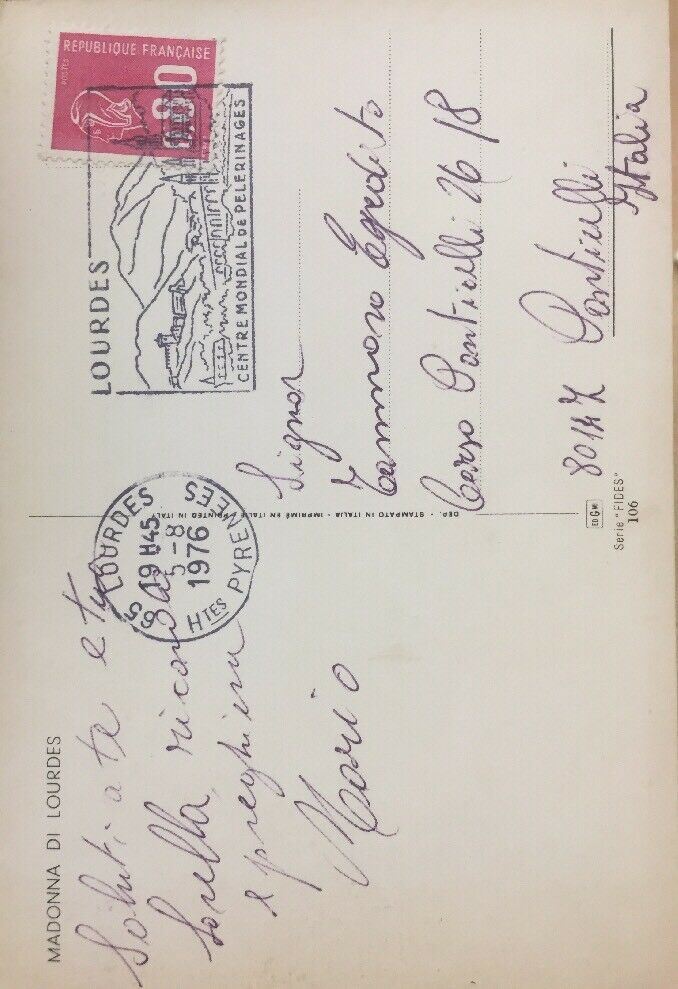 MADONNA DI LOURDES
Saluti a te e tua
sorella, ricordo
e preghiera
Mario
65 LOURDES
19 H 45
5 - 8
1976
HTES PYRENEES
LOURDES
CENTRE MONDIAL DE PELERINAGES
REPUBLIQUE FRANÇAISE
POSTES
0,80
DEP. - STAMPATO IN ITALIA - IMPRIMÉ EN ITALIE - PRINTED IN ITALY
Signor
Tammaro Espedito
Corso Ponticelli 26 18
80147 Ponticelli
Italia
ED G MI
Serie "FIDES"
106